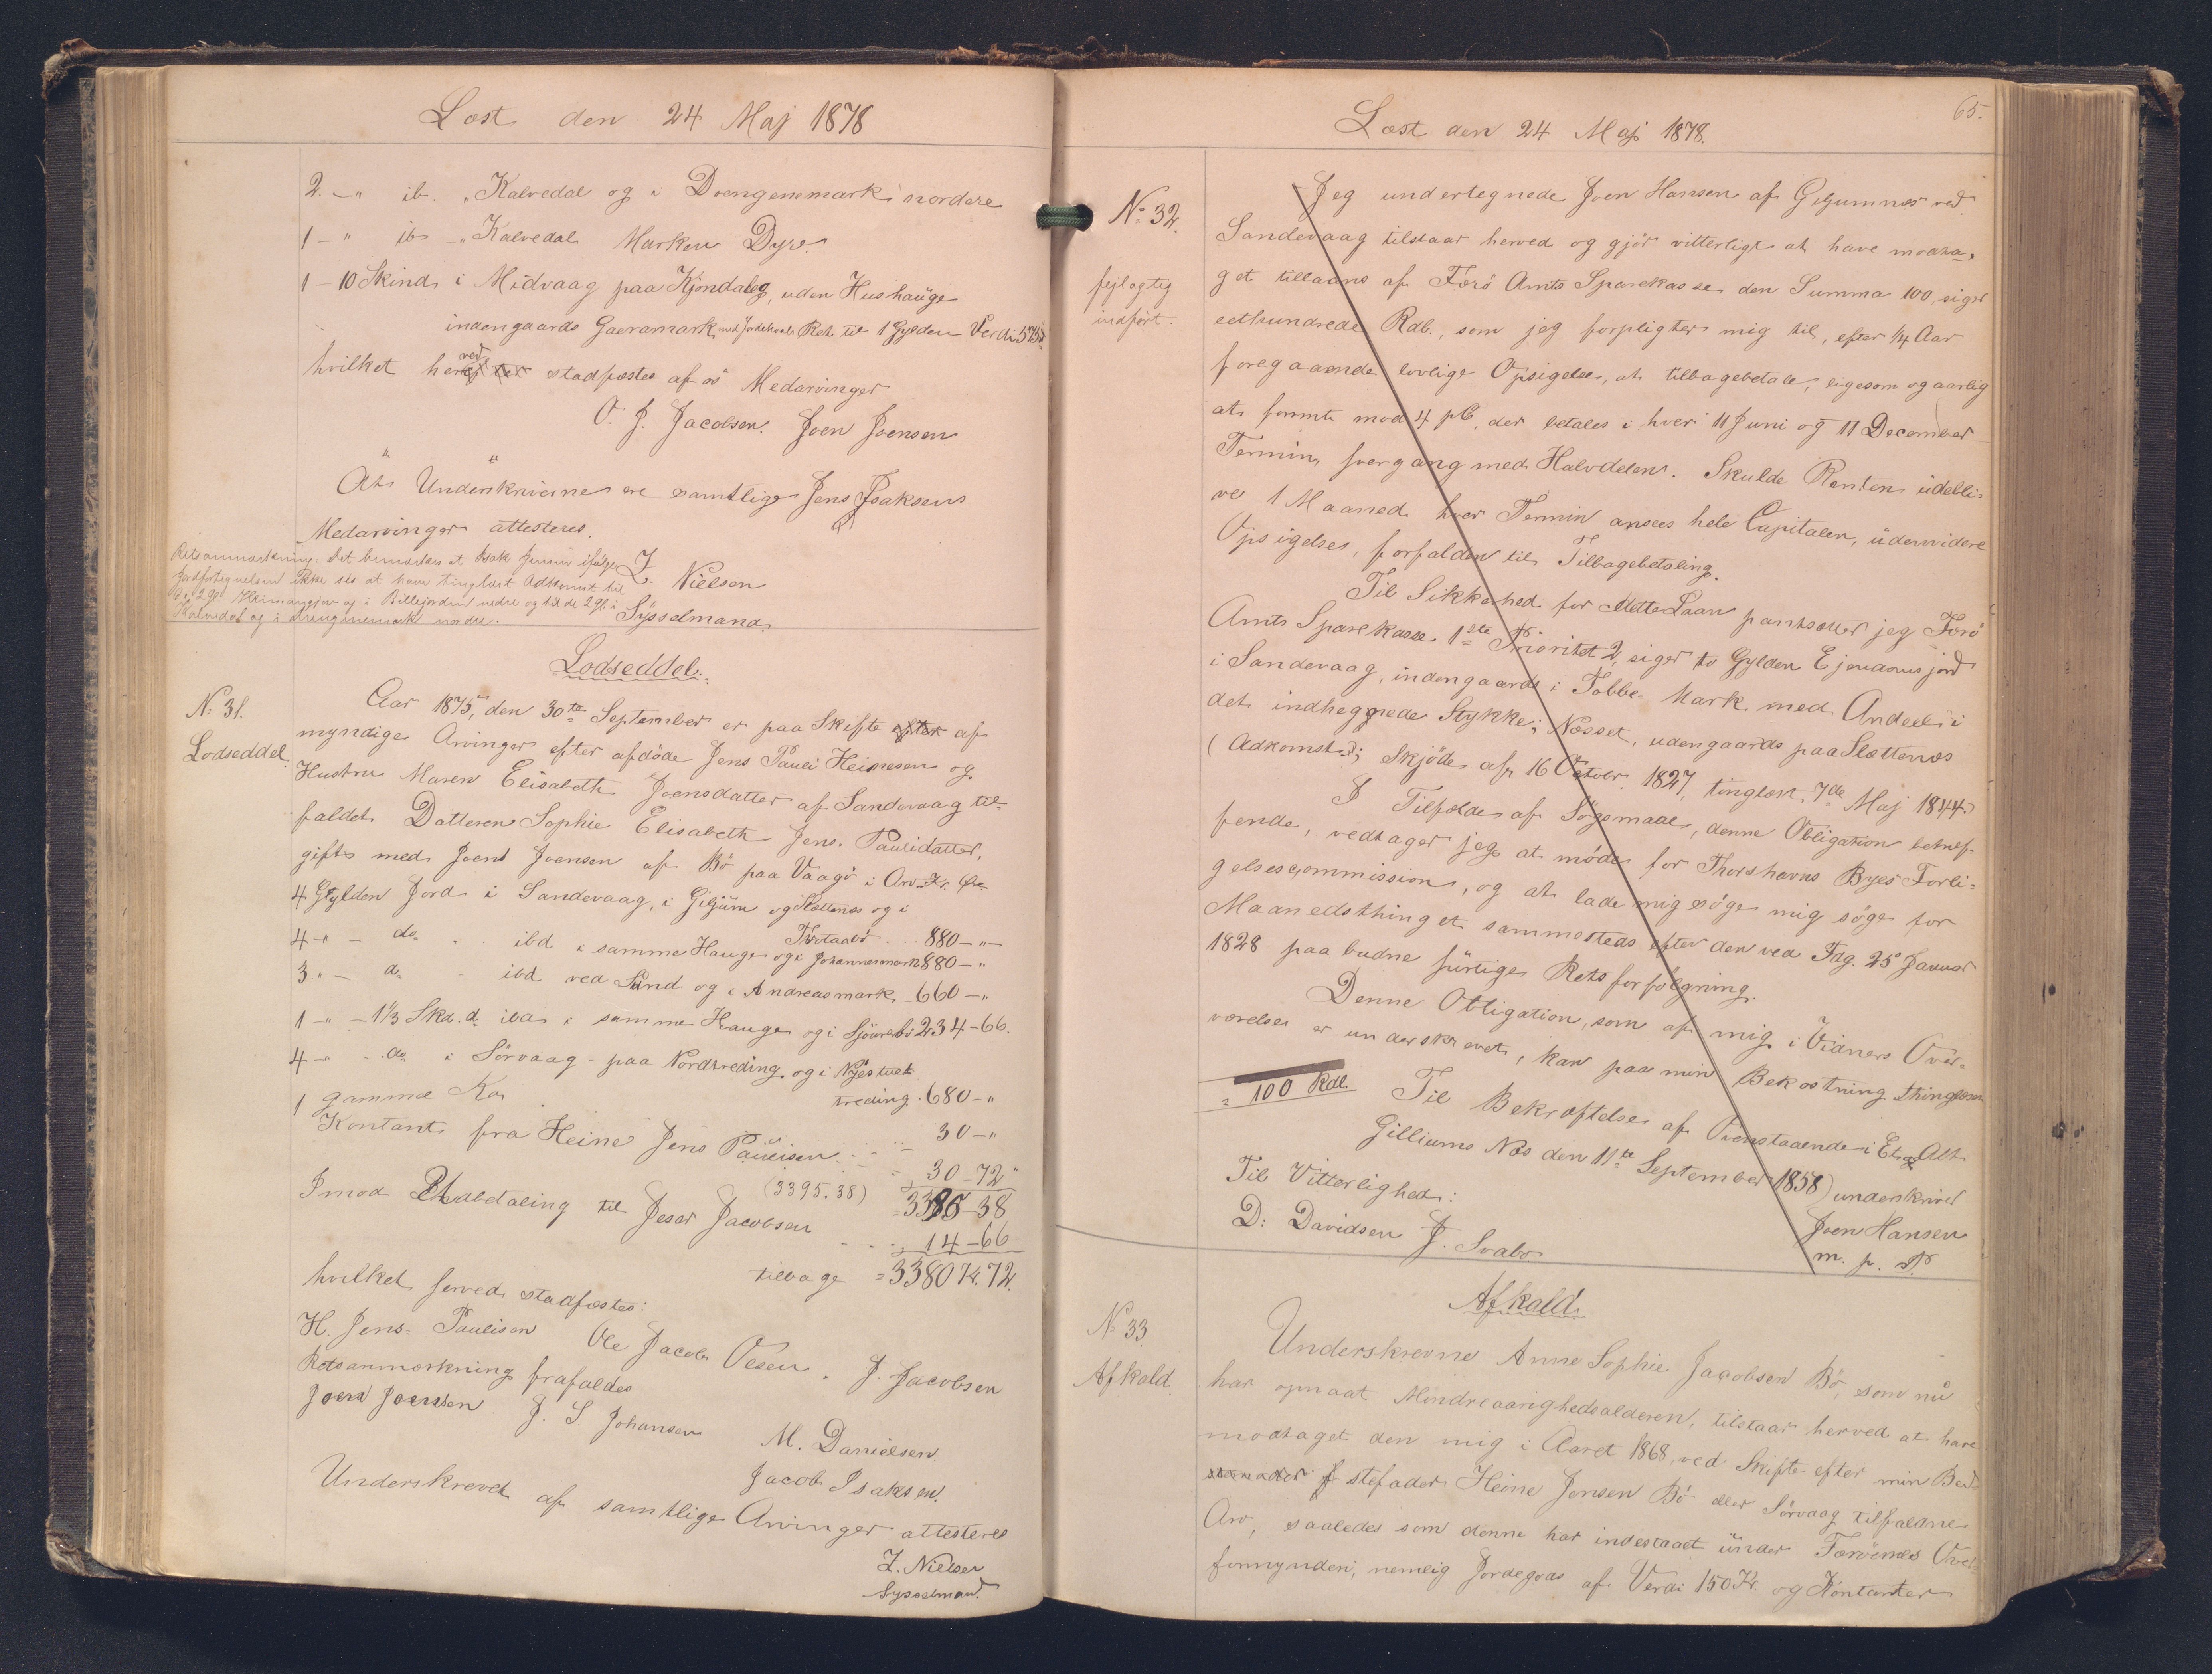 Læst den 24 Maj 1878
2 - " ib. " Kalvedal og i Drengenemark nordre
1 - " ib - " Kalvedal Marken Dyre.
1 - 10 Skind i Midvaag paa Kjøndaleg, uden Hushauge
indengaards Gaeramark, med Ret til 1 Gylden
hvilket herved stadfæstes af os Medarvinger
O. J. Jacobsen. Joen Joensen
At Underskriverne ere samtlige Jens Isaksens
Medarvinger attesteres.
Z. Nielsen
Sysselmand.
Retsanmærkning. Det bemærkes at Isak Jensen ifølge
Jordfortegnelsen ikke ses at have tinglæst Adkomst til
de 2 Gl. og i Billejorden nedre og til de 2 gl. i
Kalvedal og i Drengenemark nordre.
Lodseddel.
No 31.
Lodseddel
Aar 1875, den 30te September er paa Skifte efter af
myndige Arvinger efter afdøde Jens Pauli Heinesen og
Hustru Maren Elisabeth Joensdatter af Sandevaag til-
faldet Datteren Sophie Elisabeth Jens. Paulidatter,
gift med Joen Joensen af Bø paa Vaagø i Arv Kr. Øre
4 Gylden Jord i Sandevaag, i Giljum og Slættenæs og i
880 - " -
4 - " - do. ibd i samme Hauge og i Johannesmark 880 - "
3 " - do - ibd ved Sand og i Andreasmark, 660 - "
1 - " - 1⅓ Skd. do ibd i samme Hauge og i 234 - 66.
4 - " - do i Sörvaag - paa Nordtreding og i Nyestuetreding. 680 - "
1 gammel Ko 30 - "
Kontant fra Heine Jens Paulisen 30 - 72 "
(3395.38) = 3385 - 38
Imod Udbetaling til Jesar Jacobsen 14 - 66
tilbage = 3380 Kr. 72.
hvilket herved stadfæstes:
H. Jens- Paulisen Ole Jacob Olesen. J. Jacobsen
Retsanmærkning frafaldes
Joen Joensen J. S. Johansen M. Danielsen
Jacob Isaksen.
Underskrevet af samtlige Arvinger attesteres
Z. Nielsen
Sysselmand.
65.
Læst den 24 Maj 1878.
No 32.
fejlagtig
indført.
Jeg undertegnede Joen Hansen af Giljumnæs ved
Sandevaag tilstaar herved og gjør vitterligt at have modta-
get tillaans af Færö Amts Sparekasse den Summa 100, siger
eethundrede Rdl., som jeg forpligter mig til, efter ¼ Aar
foregaaende lovlige Opsigelse, at tilbagebetale, ligesom og aarlig
at forrente med 4 pC, der betales i hver 11 Juni og 11 December
Termin, hvergang med Halvdelen. Skulde Renten udebli-
ve 1 Maaned hver Termin ansees hele Capitalen, udenvidere
Opsigelse, forfalden til Tilbagebetaling.
Til Sikkerhed for dette Laan pantsætter jeg Færö
Amts Sparekasse 1ste Prioritet 2, siger to Gylden Ejendomsjord
i Sandevaag, indengaards i Tobbe- Mark med Andeel i
det indheggnede Stykke; Næsset, udengaards paa Slættenæs
(Adkomst: Skjöde af 16 Octobr. 1827, tinglæst 7de Maj 1844.)
I Tilfælde af Søgsmaal, denne Obligation betref-
fende, vedtager jeg at møde for Thorshavns Byes Forli-
gelsescommission, og at lade mig søge mig søge for
Maanedsthinget sammesteds efter den ved Fdg. 25 Januar
1828 paabudne hurtige Retsforfølgning.
Denne Obligation, som af mig i Vidners Over-
værelse er underskrevet, kan paa min Bekostning thinglæses
= 100 Rdl. Til Bekræftelse af Ovenstaaende i Et og Alt
Gilliums Næs den 11te September 1858) underskriver
Til Vitterlighed: Joen Hansen
D. Davidsen J. Svabo m. p. P.
Afkald.
No 33.
Afkald.
Underskrevne Anne Sophie Jacobsen Bø, som nu
har opnaaet Mindreaarighedsalderen, tilstaar herved at have
modtaget den mig i Aaret 1868, ved Skifte efter min Bed-
stefader Heine Jensen Bø eller Sörvaag tilfaldne
Arv, saaledes som denne har indestaaet under Færöernes Over-
formynderi, nemlig Jordegods af Verdi 150 Kr. og Kontanter